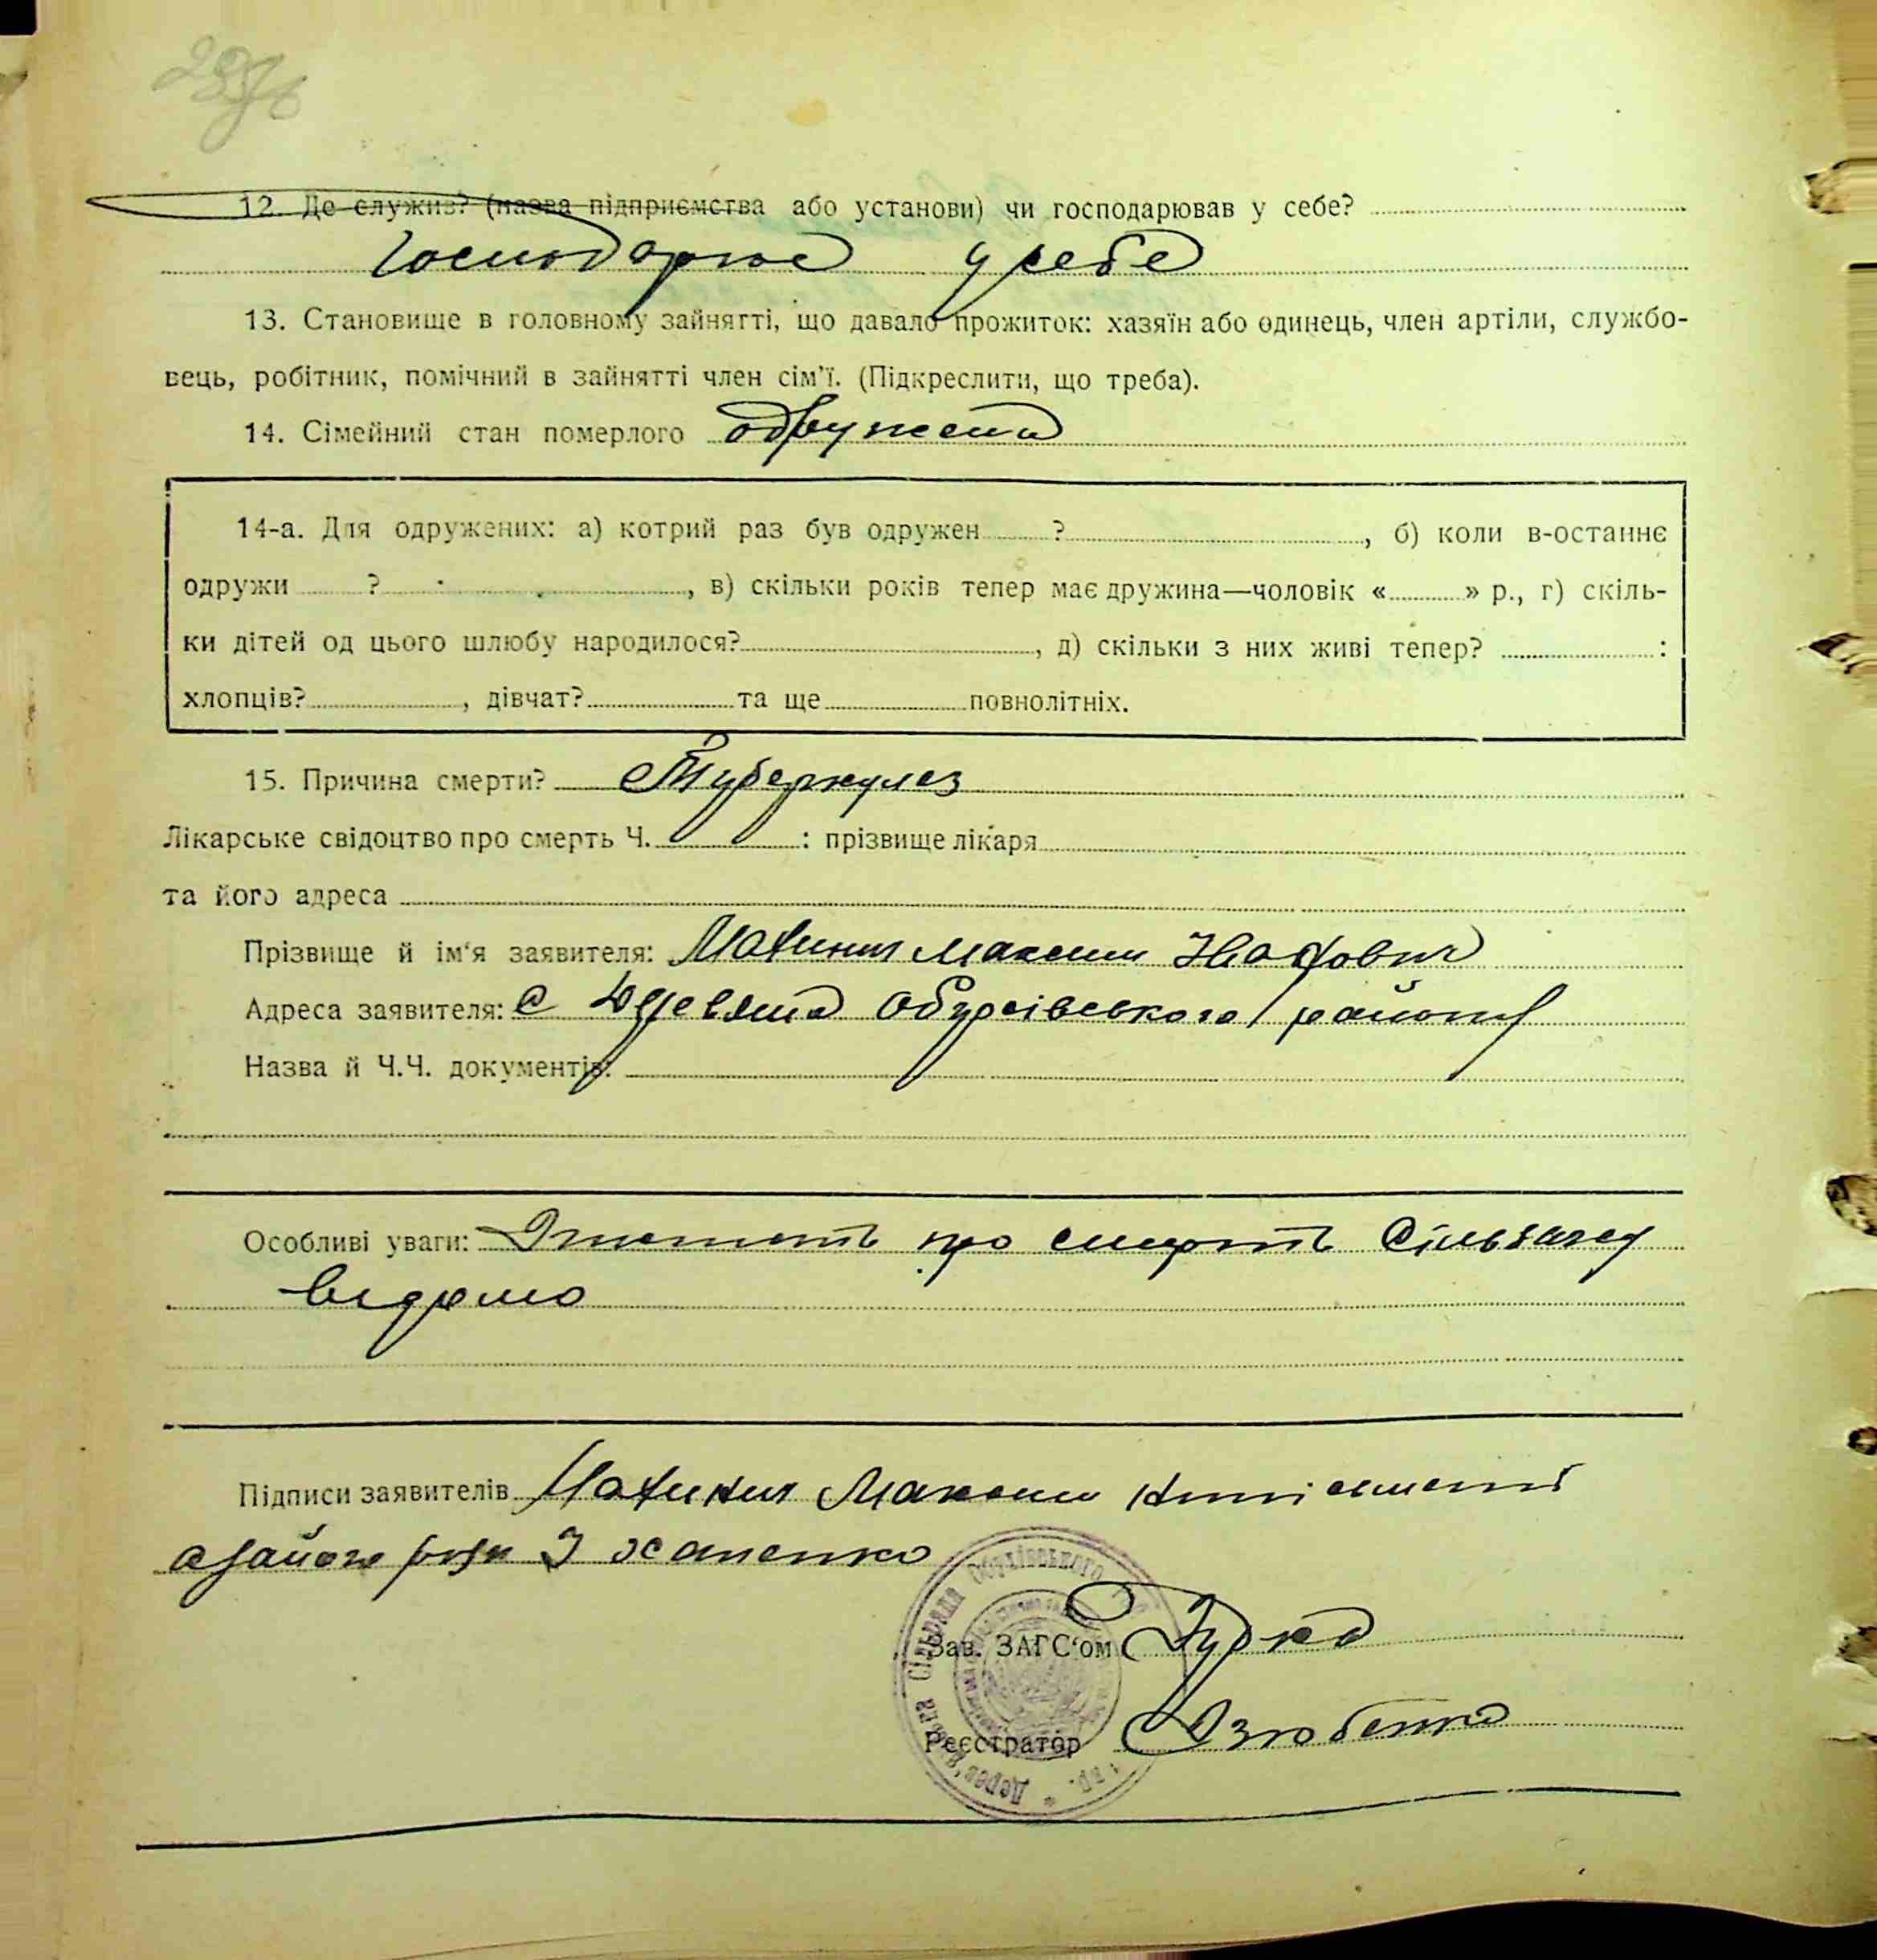 12. Де служив? (назва підприємства або установи) чи господарював у себе?
господарює у себе
13. Становище в головному зайнятті, що давало прожиток: хазяїн або одинець, член артіли, службо-
вець, робітник, помічний в зайнятті член сім'ї. (Підкреслити, що треба).
14. Сімейний стан померлого одружена
14-а. Для одружених: а) котрий раз був одружен ? , б) коли в-останнє
одружи ? , в) скільки років тепер має дружина—чоловік « » р., г) скіль-
ки дітей од цього шлюбу народилося? , д) скільки з них живі тепер? :
хлопців? , дівчат? та ще повнолітніх.
15. Причина смерти? Туберкулез
Лікарське свідоцтво про смерть Ч. : прізвище лікаря
та його адреса
Прізвище й ім'я заявителя: Максим
Адреса заявителя: с Деревяна Обухівського району
Назва й Ч.Ч. документів:
Особливі уваги: про смерть Сільзагсу
відомо
Підписи заявителів Максим
Зав. ЗАГС'ом
Реєстратор Дзюбенко
Дерев'яна Сільрада Обухівського